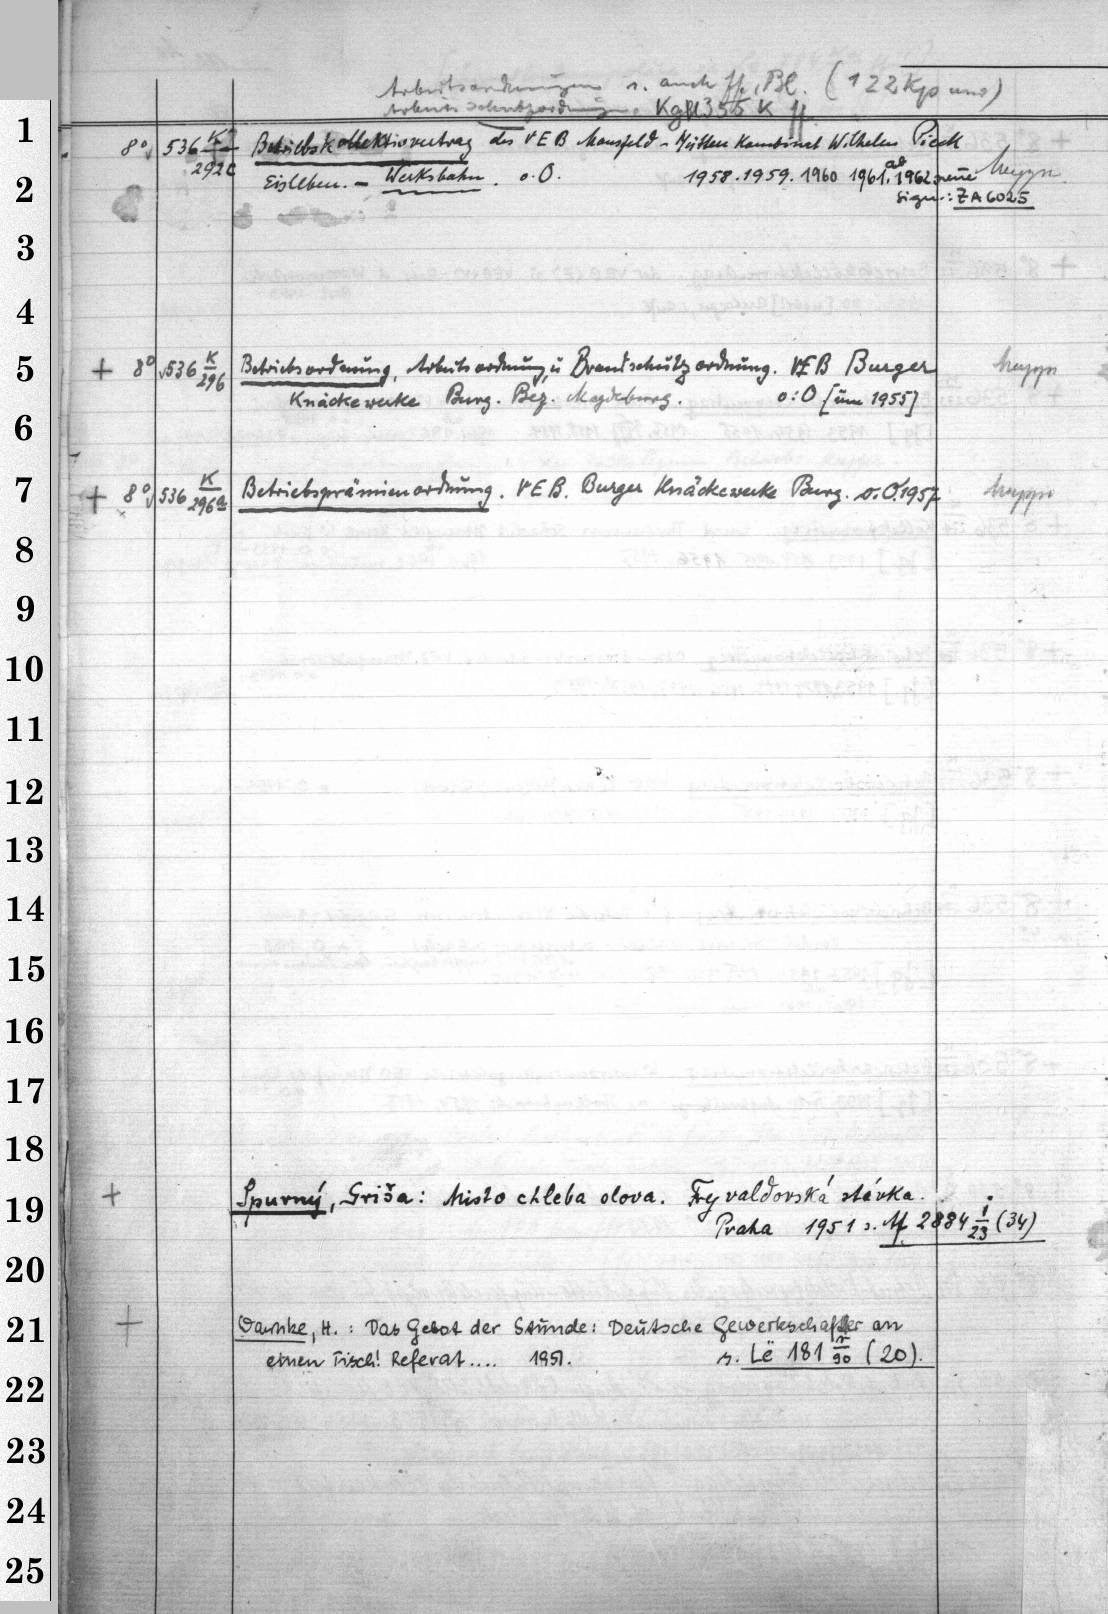 Arbeitsordnungen s. auch ff, Bl. (122 Kps und)
Arbeitsschutzordnung. KgM 355 K ff.
1 8° 536 K/292c Betriebskollektivvertrag des VEB Mansfeld-Hütten Kombinat Wilhelm Pieck
2 Eisleben. – Werksbahn. o.O. 1958. 1959. 1960 1961. ab 1962 neue Mappe
Sign.: ZA 6025
3
4
5 + 8° 536 K/296 Betriebsordnung, Arbeitsordnung, u Brandschutzordnung. VEB Burger Mappe
Knäckewerke Burg. Bez. Magdeburg. o:O [um 1955]
6
7 + 8° 536 K/296a Betriebsprämienordnung. VEB. Burger Knäckewerke Burg. o.O. 1957 Mappe
8
9
10
11
12
13
14
15
16
17
18
19 + Spurný, Griša: Místo chleba olova. Fryvaldovská stávka.
Praha 1951 s. Af 2884 i/23 (34)
20
21 + Warnke, H.: Das Gebot der Stunde: Deutsche Gewerkschafter an
einen Tisch! Referat.... 1951. s. Lë 181 r/90 (20).
22
23
24
25